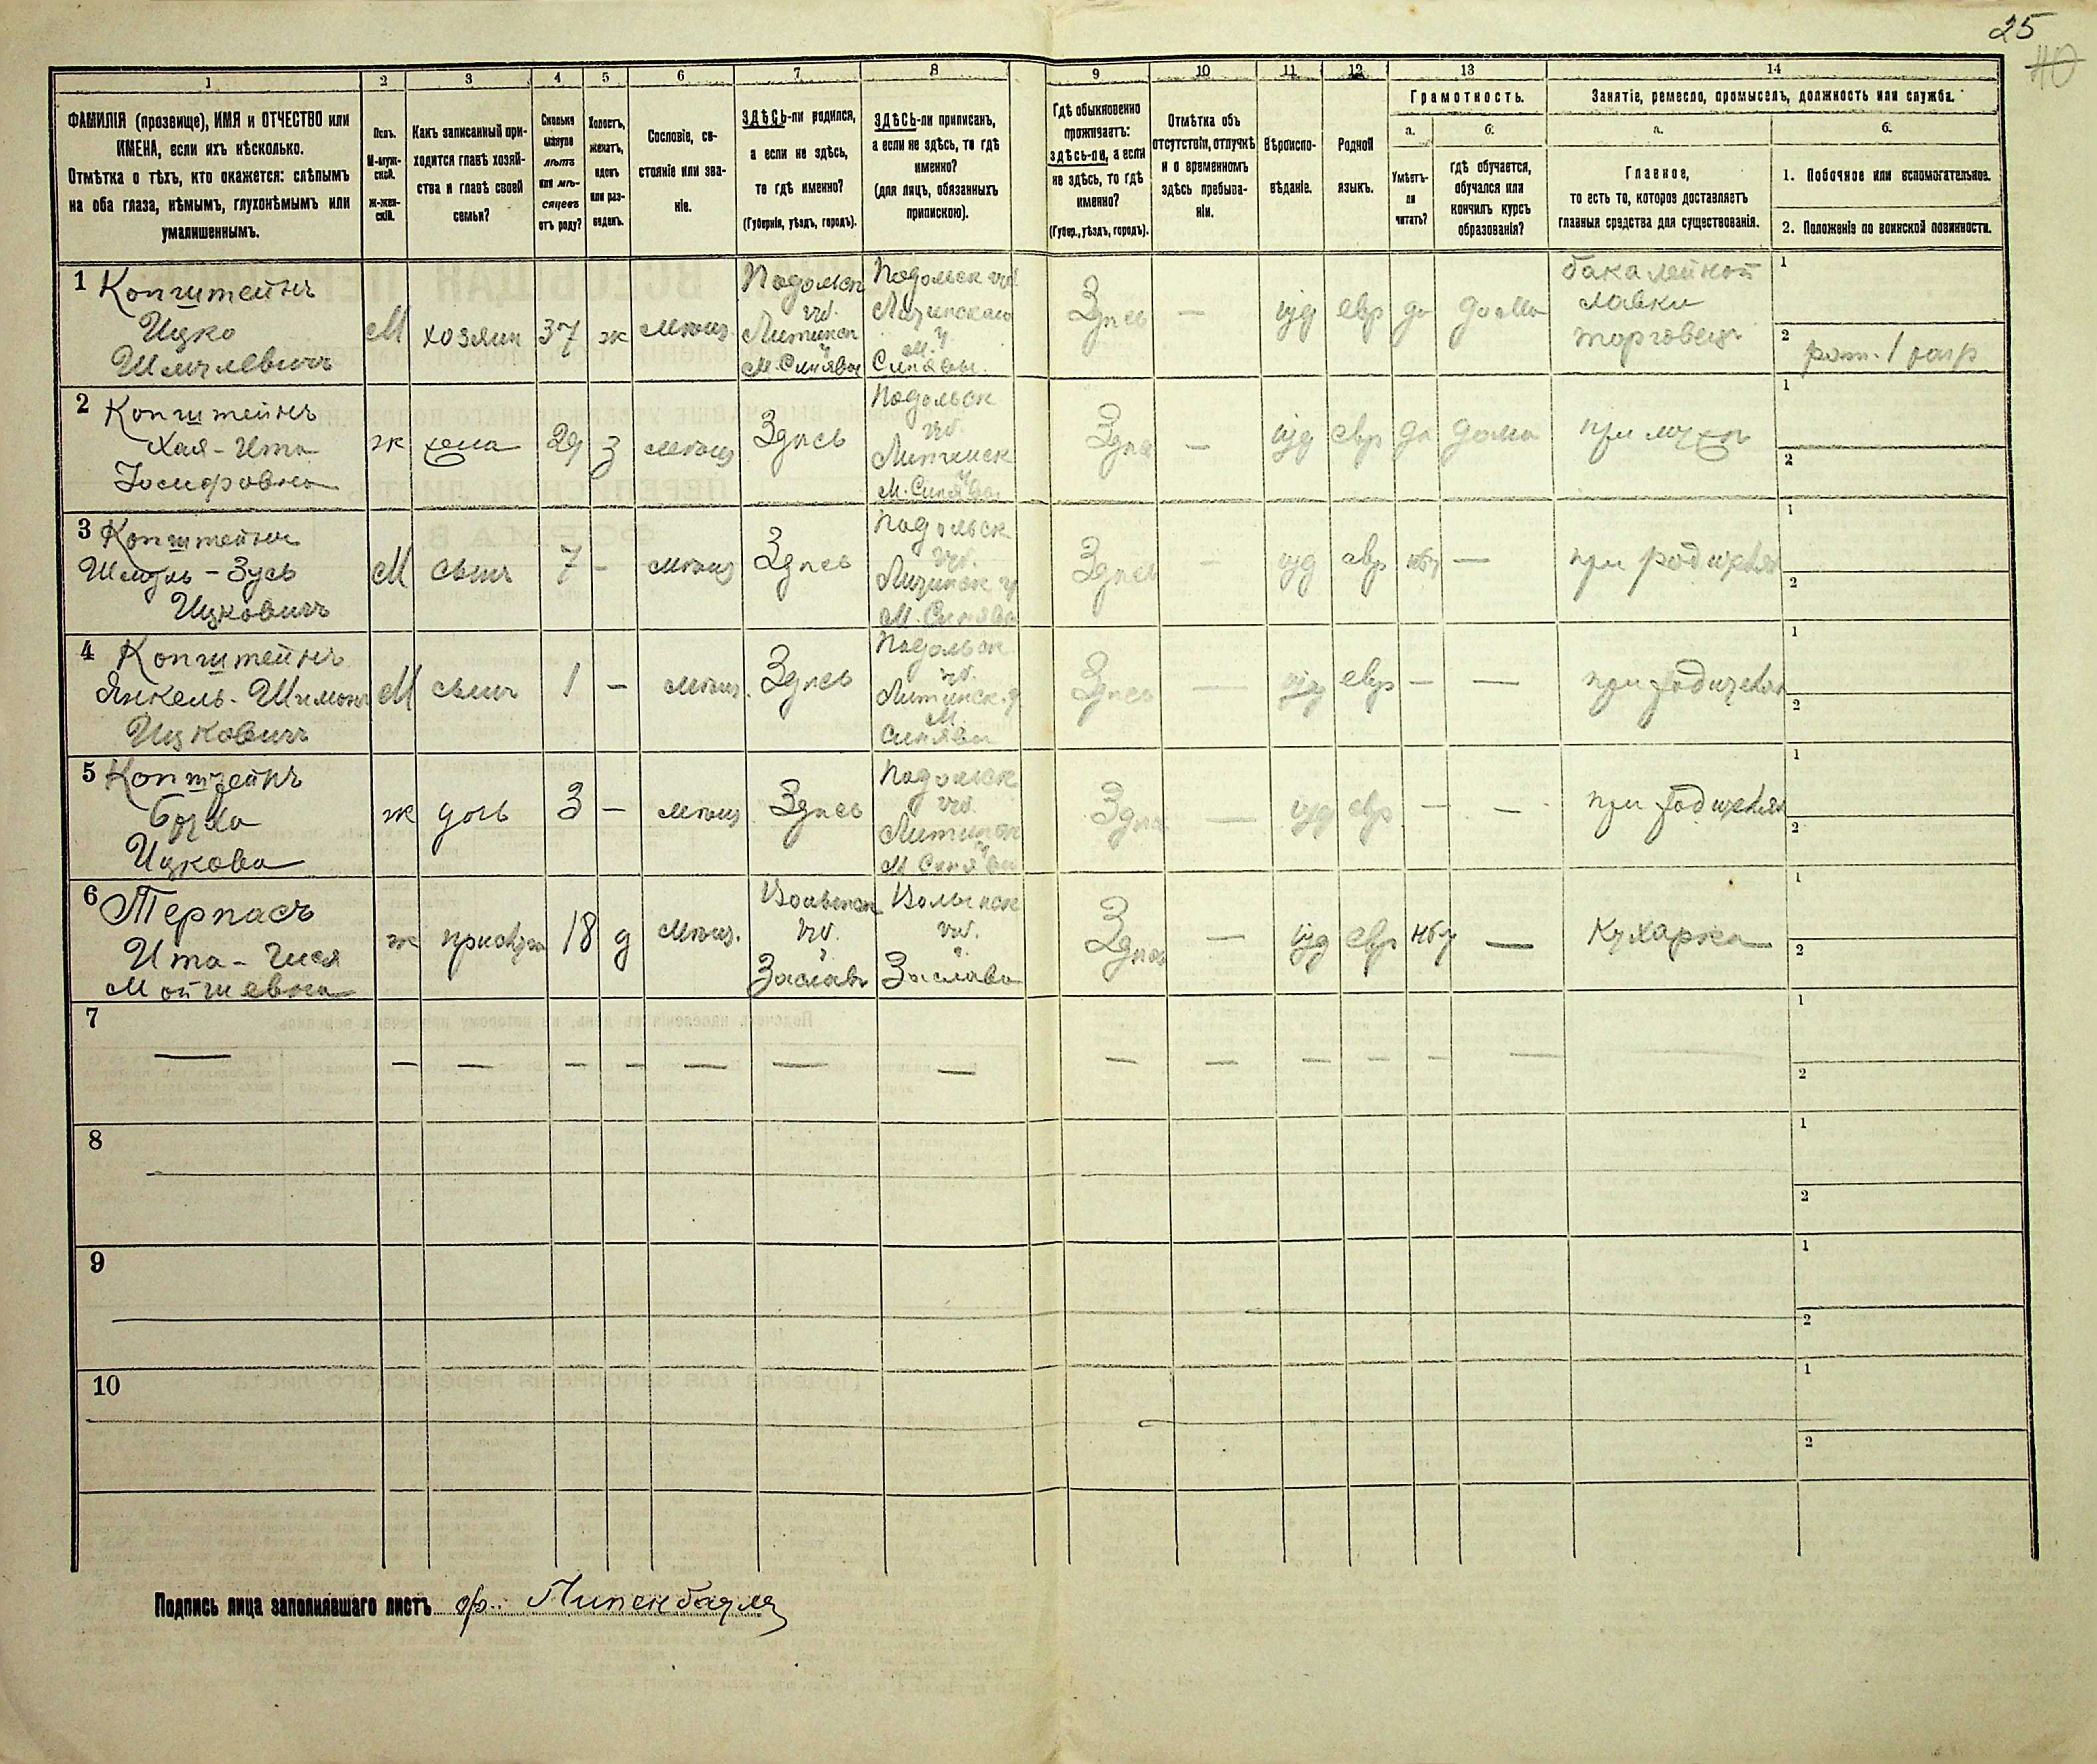 25
40
1
2
3
4
5
6
7
8
9
10
11
12
13
14
ФАМИЛІЯ (прозвище), ИМЯ и ОТЧЕСТВО или
ИМЕНА, если ихъ нѣсколько.
Отмѣтка о тѣхъ, кто окажется: слѣпымъ
на оба глаза, нѣмымъ, глухонѣмымъ или
умалишеннымъ.
Полъ.
М-муж-
ской.
Ж-жен-
скій.
Какъ записанный при-
ходится главѣ хозяй-
ства и главѣ своей
семьи?
Сколько
минуло
лѣтъ
или мѣ-
сяцевъ
отъ роду?
Холостъ,
женатъ,
вдовъ
или раз-
веденъ.
Сословіе, со-
стояніе или зва-
ніе.
ЗДѢСЬ-ли родился,
а если не здѣсь,
то гдѣ именно?
(Губернія, уѣздъ, городъ).
ЗДѢСЬ-ли приписанъ,
а если не здѣсь, то гдѣ
именно?
(для лицъ, обязанныхъ
припискою).
Гдѣ обыкновенно
проживаетъ:
здѣсь-ли, а если
не здѣсь, то гдѣ
именно?
(Губер., уѣздъ, городъ).
Отмѣтка объ
отсутствіи, отлучкѣ
и о временномъ
здѣсь пребыва-
ніи.
Вѣроиспо-
вѣданіе.
Родной
языкъ.
Грамотность.
а.
Умѣетъ-
ли
читать?
б.
гдѣ обучается,
обучался или
кончилъ курсъ
образованія?
Занятіе, ремесло, промыселъ, должность или служба.
а.
Главное,
то есть то, которое доставляетъ
главныя средства для существованія.
б.
1. Побочное или вспомогательное.
2. Положеніе по воинской повинности.
1 Копштейнъ
Ицко
Шмулевичъ
М
хозяин
37
ж
мѣщ.
Подольск
губ.
Литинск
у
М. Синява
Подольск губ.
у
м.
Синявы.
Здѣсь
—
іуд
евр
да
дома
бакалейной
лавки
торговецъ
1
2
рат. 1 разр
2 Копштейнъ
Хая-Ита
Іосифовна
ж
жена
29
з
мѣщ
Здѣсь
Подольск
губ.
Литинск
у
М. Синява
Здѣсь
—
іуд
евр
да
дома
при мужѣ
1
2
3 Копштейнъ
Шмуль-Зусь
Ицковичъ
М
сынъ
7
-
мѣщ
Здѣсь
Подольск
губ.
Литинск у
М. Синява
Здѣсь
-
іуд
евр
нѣт
—
при родителя
1
2
4 Копштейнъ
Янкель-Шимонъ
Ицковичъ
М
сынъ
1
-
мѣщ.
Здѣсь
Подольск
губ.
Литинск. у
М.
Синява
Здѣсь
—
іуд
евр
—
—
при родителя
1
2
5 Копштейнъ
Ицкова
ж
дочь
3
—
мѣщ
Здѣсь
Подольск
губ.
Литинск
у
М Синява
Здѣсь
—
іуд
евр
—
—
при родителя
1
2
6 Терпасъ
Ита-
Мошиевна
ж
18
д
мѣщ.
Волынск
губ.
г.
Заславъ
Волынск
губ.
г.
Заслава
Здѣсь
—
іуд
евр
нѣт
—
Кухарка
1
2
7
— — — — — — — — — — — — — —
1
2
8
1
2
9
1
2
10
1
2
Подпись лица заполнявшаго листъ